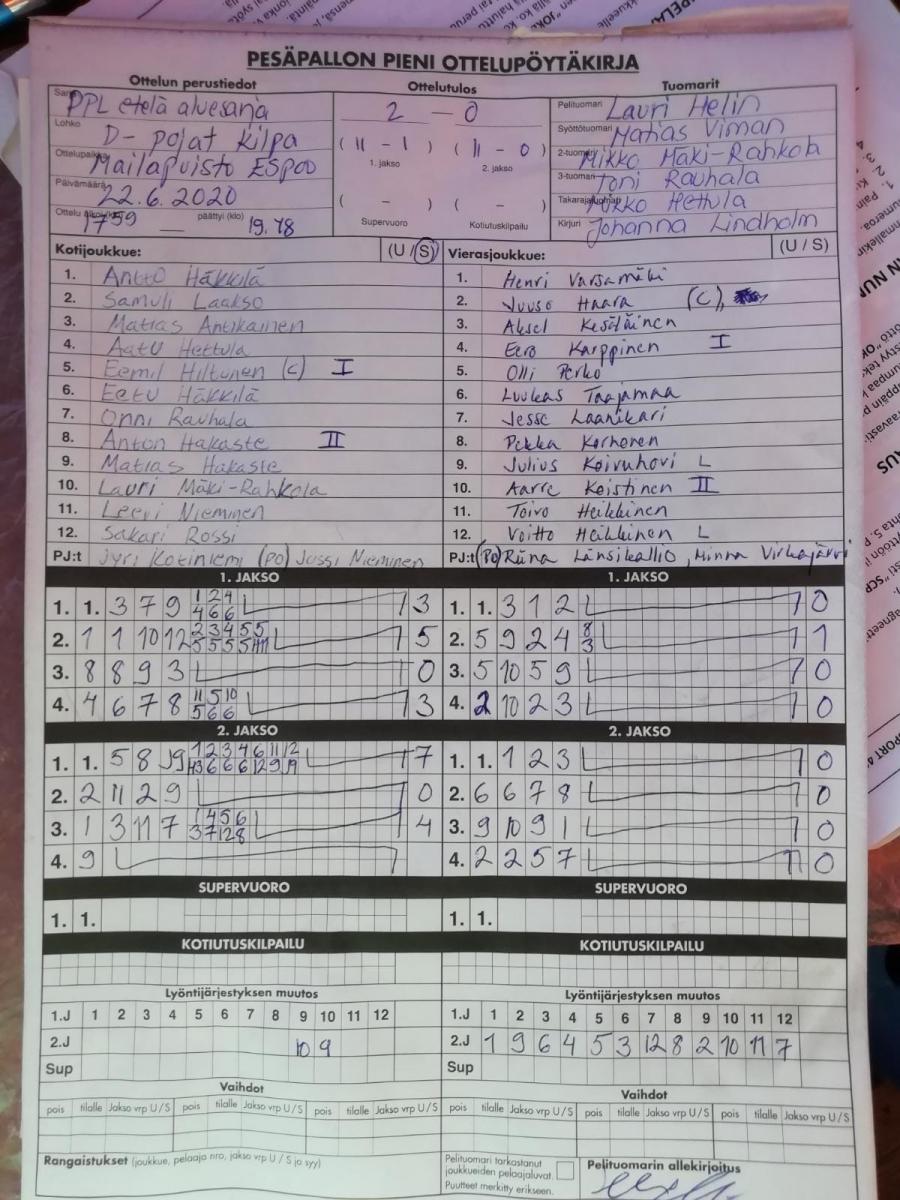 PESÄPALLON PIENI OTTELUPÖYTÄKIRJA
Ottelun perustiedot
PPL etelä aluesarja
Lohko D-pojat kilpa
Ottelupaikka Mailapuisto ESPOO
Päivämäärä 22.6.2020
1759 — päättyi (klo) 19.48
Ottelutulos
2 — 0
( 11 - 1 ) ( 11 - 0 )
1. jakso 2. jakso
( - ) ( - )
Supervuoro Kotiutuskilpailu
Tuomarit
Pelituomari Lauri Helin
Syöttötuomari Matias Viman
2-tuomari Mikko Mäki-Rahkola
3-tuomari Toni Rauhala
Takarajatuomari Jukko Hettula
Kirjuri Johanna Lindholm
Kotijoukkue: (U / S)
1. Antto Häkkilä
2. Samuli Laakso
3. Matias Antikainen
4. Aatu Hettula
5. Eemil Hiltunen (c) I
6. Eetu Häkkilä
7. Onni Rauhala
8. Anton Hakaste II
9. Matias Hakaste
10. Lauri Mäki-Rahkola
11. Leevi Nieminen
12. Sakari Rossi
PJ:t Jyri Kotiniemi (PO) Jussi Nieminen
Vierasjoukkue: (U / S)
1. Henri Varsamäki
2. Juuso Haara (C)
3. Aksel Kesäläinen
4. Eero Karppinen I
5. Olli Perko
6. Luukas Taajamaa
7. Jesse Laanikari
8. Pekka Korhonen
9. Julius Koivuhovi L
10. Aarre Koistinen II
11. Toivo Heikkinen
12. Voitto Heikkinen L
PJ:t (PO) Riina Länsikallio, Minna Virkajärvi
1. JAKSO
1. 1. 3 7 9 1 2 4 3
4 6 6
2. 1 1 10 12 2 3 4 5 5 5
3. 8 8 9 3 0
4. 4 6 7 8 11 5 10 3
5 6 6
1. JAKSO
1. 1. 3 1 2 0
2. 5 9 2 4 8 1
3
3. 5 10 5 9 0
4. 2 10 2 3 0
2. JAKSO
1. 1. 5 8 1 2 3 4 6 11 12 7
2. 2 11 2 9 0
3. 1 3 11 7 1 4 5 6 4
3 7 12 8
4. 9
2. JAKSO
1. 1. 1 2 3 0
2. 6 6 7 8 0
3. 9 10 9 1 0
4. 2 2 5 7 0
SUPERVUORO
1. 1.
SUPERVUORO
1. 1.
KOTIUTUSKILPAILU
KOTIUTUSKILPAILU
Lyöntijärjestyksen muutos
1.J 1 2 3 4 5 6 7 8 9 10 11 12
2.J 10 9
Sup
Lyöntijärjestyksen muutos
1.J 1 2 3 4 5 6 7 8 9 10 11 12
2.J 1 9 6 4 5 3 12 8 2 10 11 7
Sup
Vaihdot
pois tilalle Jakso vrp U / S pois tilalle Jakso vrp U / S pois tilalle Jakso vrp U / S
Vaihdot
pois tilalle Jakso vrp U / S pois tilalle Jakso vrp U / S pois tilalle Jakso vrp U / S
Rangaistukset (joukkue, pelaaja nro, jakso vrp U / S ja syy)
Pelituomari tarkastanut
joukkueiden pelaajaluvat.
Puutteet merkitty erikseen.
Pelituomarin allekirjoitus